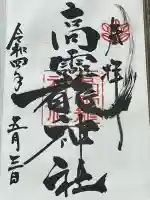 奉拝
高龗神社
令和四年
五月三日